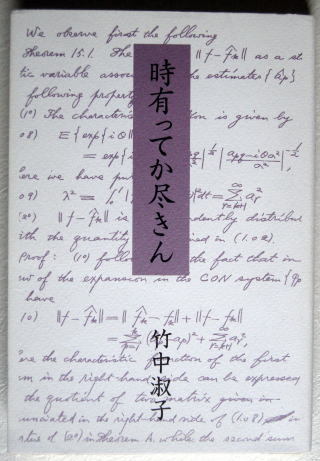 We observe first the following
Theorem 15.1. The ‖f-f̂ₖ‖ as a sto
tic variable assoc the estimates {âp}
following propert
(1°) The characteris ion is given by
08) E{exp{iθ‖
= exp{i
ere we have pu
09) λ² = dt = Σ aᵥ²
(2°) ‖f-f̂ₖ‖ is dently distribu
ith the quantity ined in (1.02).
Proof: (1°) follow the fact that in
w of the expansion in the CON system {φp
have
10) ‖f-f̂ₖ‖ = ‖f̂ₖ-fₖ‖ + ‖f-fₖ‖
ere the characteristic function of the first
m in the right-hand side can be expressed
the quotient of two matrix given in
unciated in the right-hand side of (1.08)
rtue of (2°) in Theorem A. while the second sum
時有ってか尽きん
竹中淑子